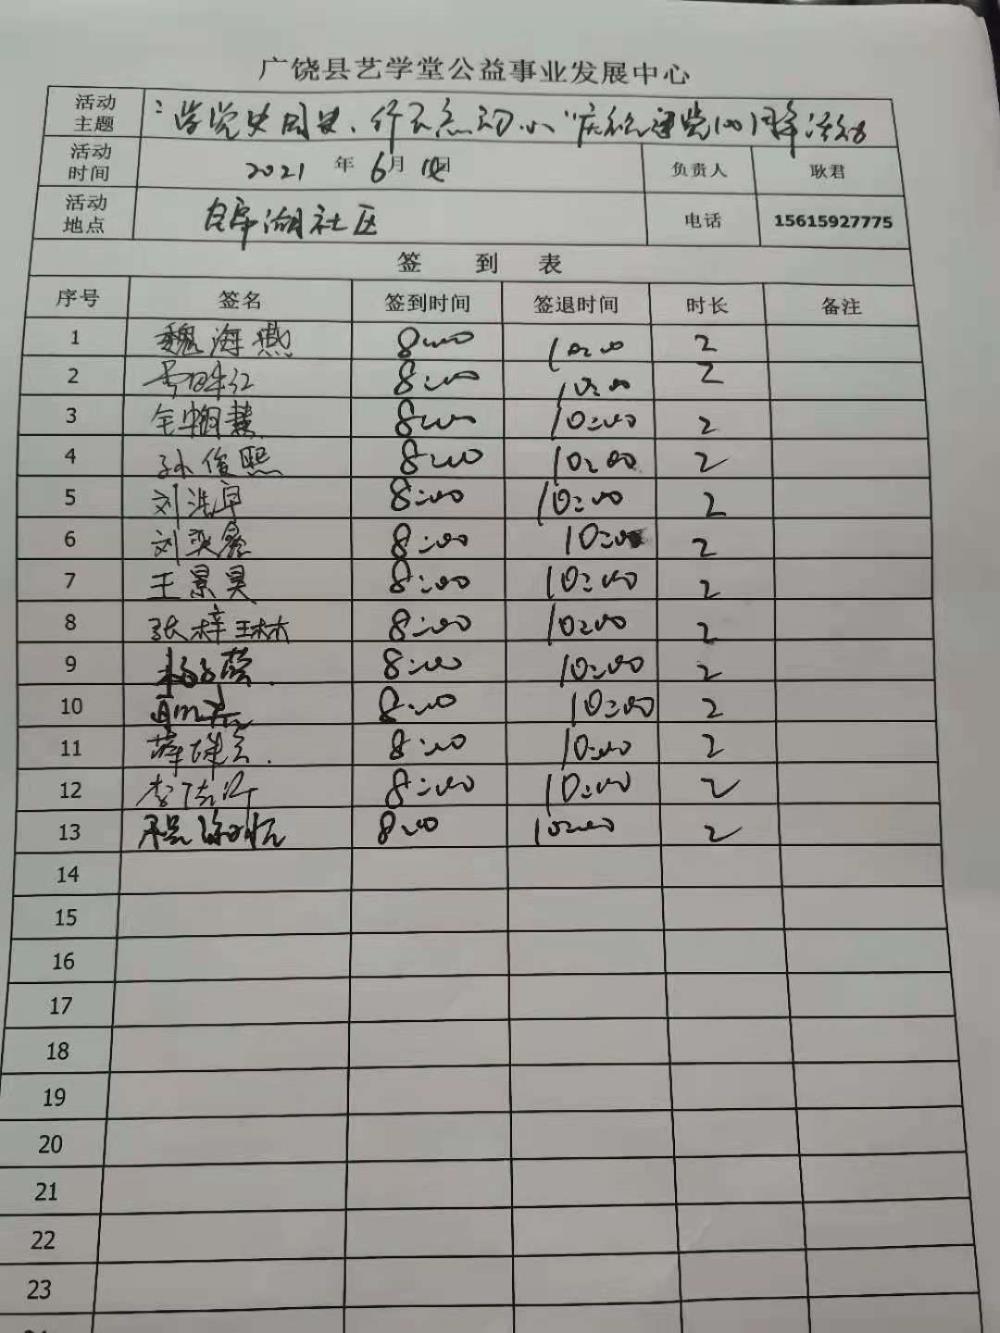 广饶县艺学堂公益事业发展中心
活动主题 学党史 庆祝建党100周年活动
活动时间 2021年6月 日 负责人 耿君
活动地点 湖社区 电话 15615927775
签到表
序号 签名 签到时间 签退时间 时长 备注
1 魏海燕 8:00 10:00 2
2 8:00 10:00 2
3 8:00 10:00 2
4 孙俊熙 8:00 10:00 2
5 刘 8:00 10:00 2
6 刘奕鑫 8:00 10:00 2
7 王景昊 8:00 10:00 2
8 张梓琳 8:00 10:00 2
9 8:00 10:00 2
10 8:00 10:00 2
11 薛 8:00 10:00 2
12 李 8:00 10:00 2
13 8:00 10:00 2
14
15
16
17
18
19
20
21
22
23